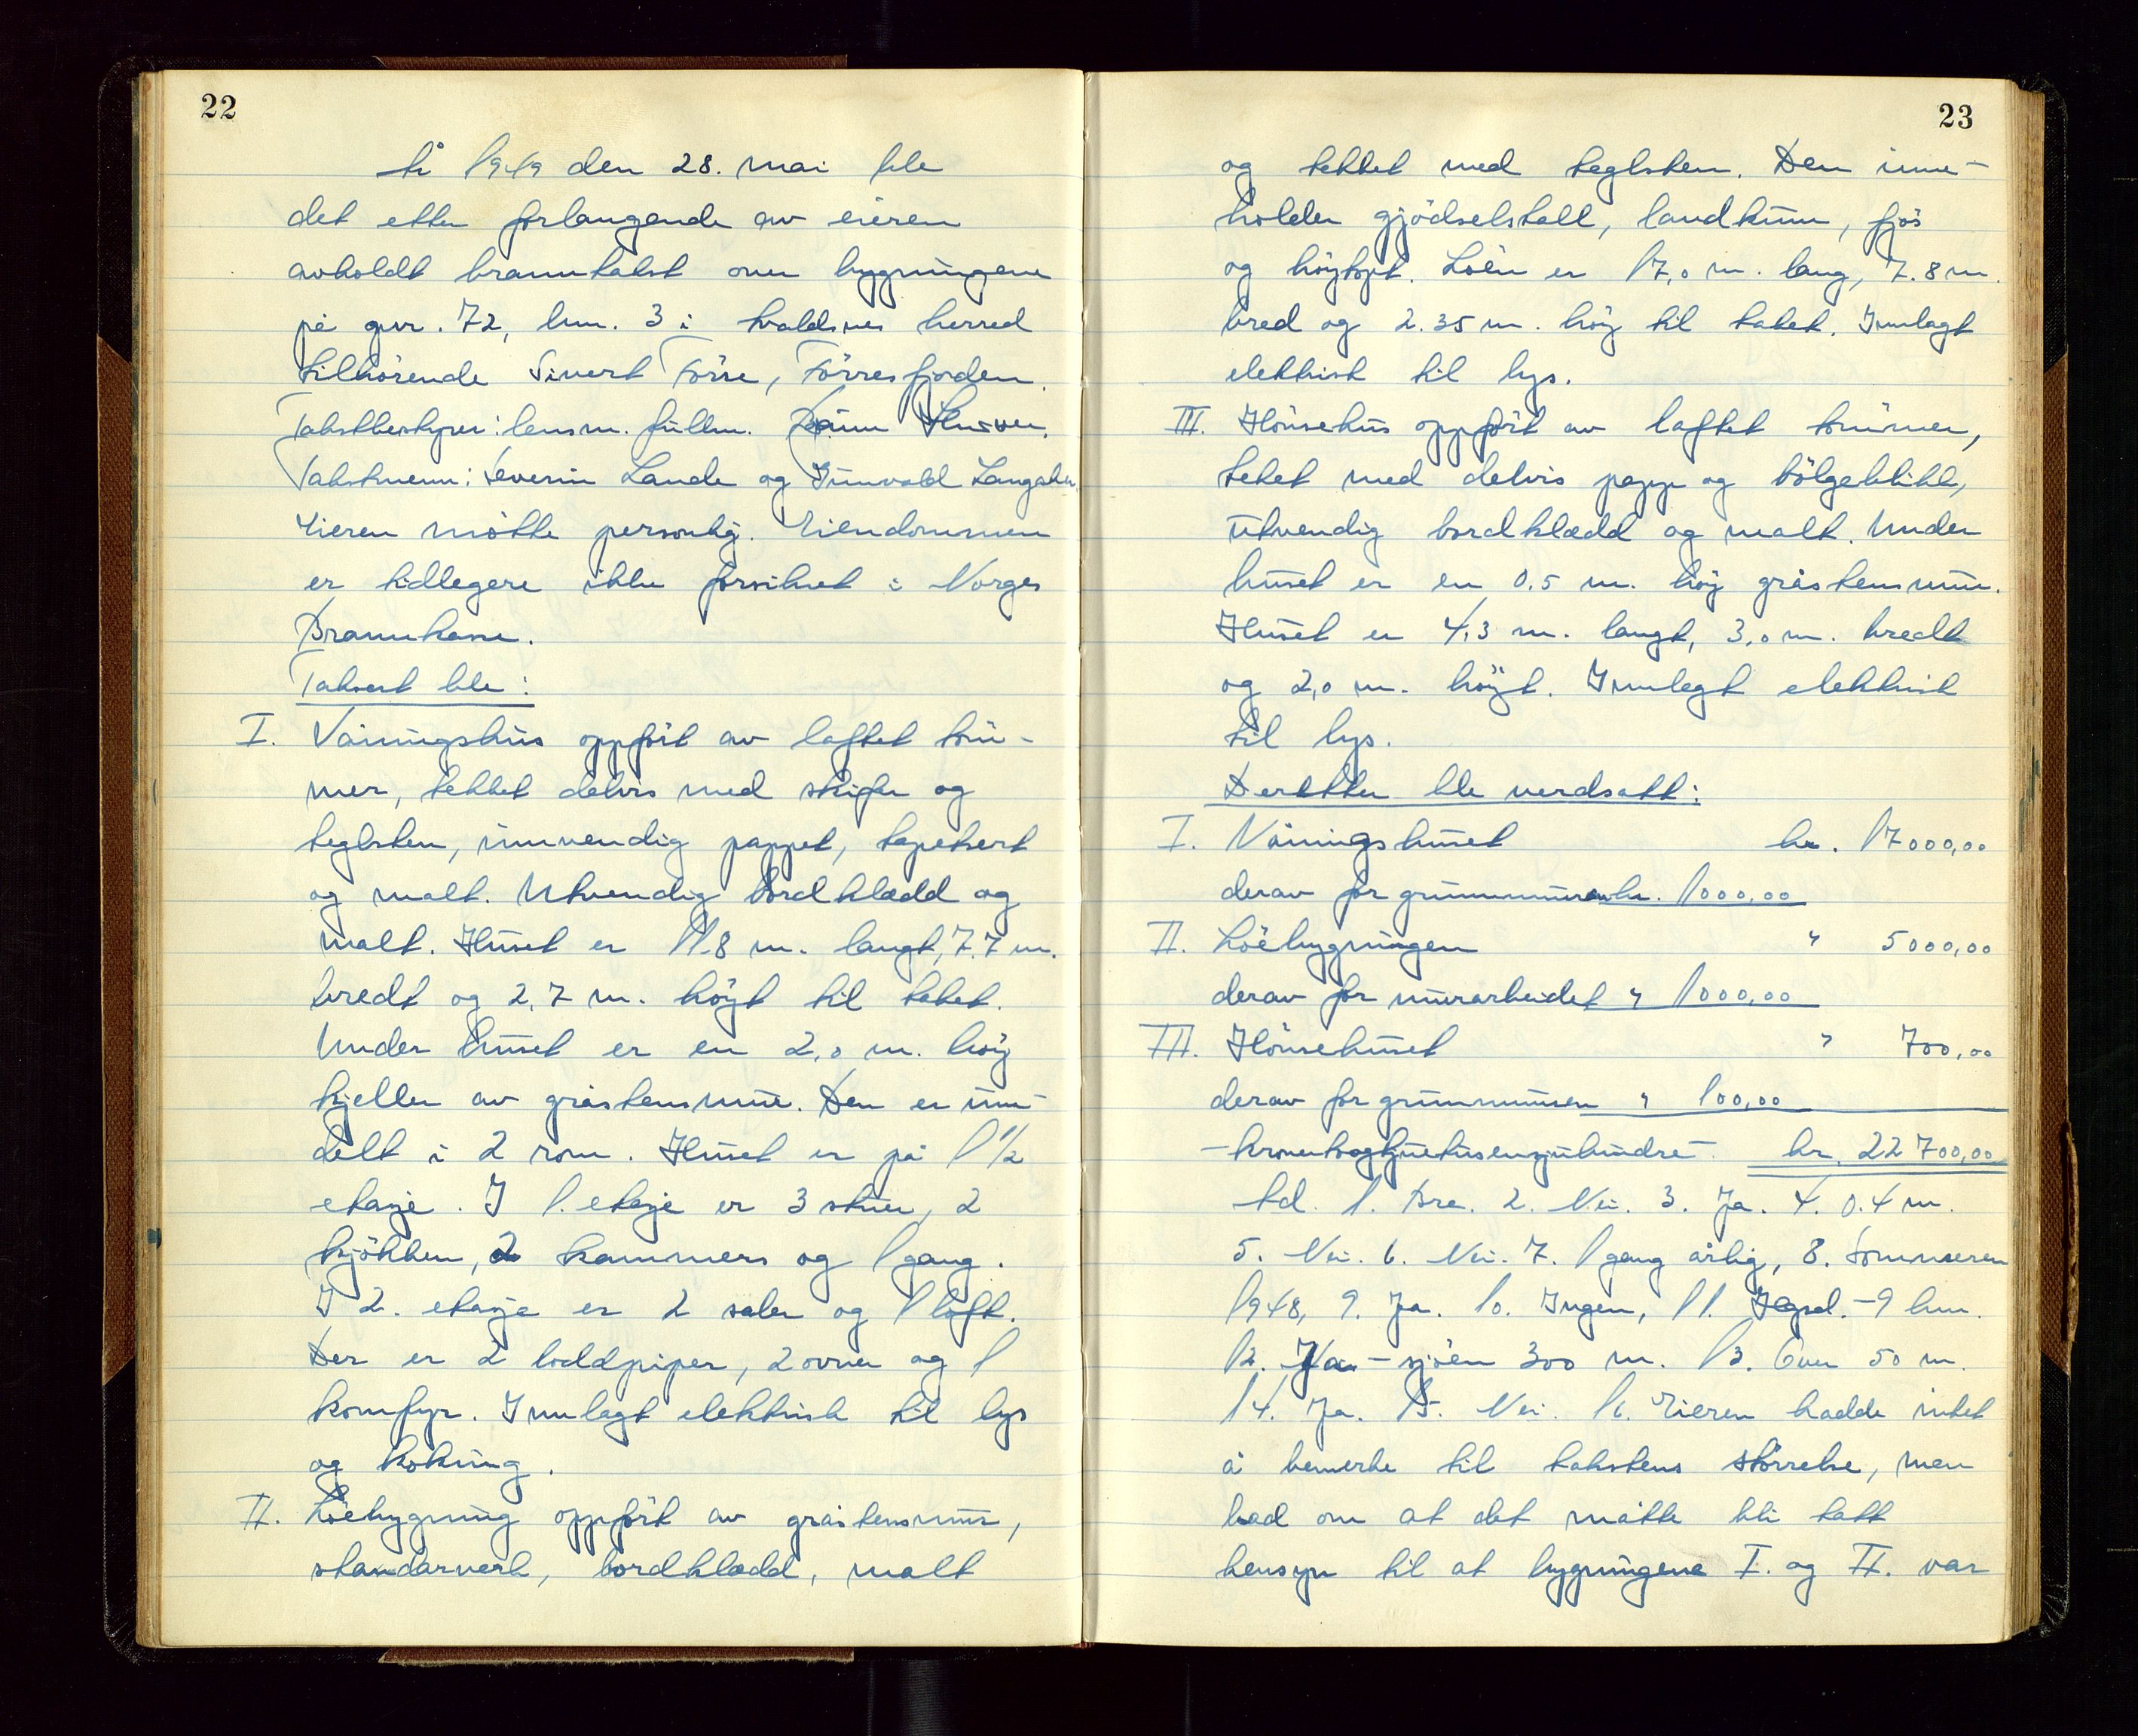 22
År 1949 den 28. mai ble
det etter forlangende av eieren
avholdt branntakst over bygningene
på gnr. 72, bnr. 3 i Avaldsnes herred
tilhørende Sivert Førre, Førresfjorden.
Takstbestyrer: lensm. fullm.
Takstmenn: Severin Lande og Gunvald Langaker.
Eieren møtte personlig. Eiendommen
er tidlegere ikke forsikret i Norges
Brannkasse.
Taksert ble:
I. Våningshus oppført av laftet tøm-
mer, tekket delvis med skifer og
teglsten, innvendig pappet, tapetsert
og malt. Utvendig bordklædd og
malt. Huset er 11.8 m. langt, 7.7 m.
bredt og 2,7 m. høyt til taket.
Under huset er en 2,0 m. høy
kjeller av gråstensmur. Den er inn-
delt i 2 rom. Huset er på 1 1/2
etasje. I 1. etasje er 3 stuer, 2
kjøkken, 2 kammers og 1 gang.
I 2. etasje er 2 saler og 1 loft.
Der er 2 loddpiper, 2 ovner og 1
komfyr. Innlagt elektrisk til lys
og koking.
II. Løebygning oppført av gråstensmur,
standarverk, bordklædd, malt
23
og tekket med teglsten. Den inne-
holder gjødselstall, landkum, fjøs
og høyloft. Løen er 17,0 m. lang, 7.8 m.
bred og 2.35 m. høy til taket. Innlagt
elektrisk til lys.
III. Hønsehus oppført av laftet tømmer,
teket med delvis papp og bølgeblikk,
utvendig bordklædd og malt. Under
huset er en 0.5 m. høy gråstensmur.
Huset er 4,3 m. langt, 3,0 m. bredt
og 2,0 m. høyt. Innlegt elektrisk
til lys.
Deretter ble verdsatt:
I. Våningshuset kr. 17000,00
derav for grunnmuren kr. 1000,00
II. Løebygningen " 5000,00
derav for murarbeidet " 1000,00
III. Hønsehuset " 700,00
derav for grunnmuren " 100,00
-kronertoogtjuetusensjuhundre- kr. 22700,00
td. 1. Bra. 2. Nei. 3. Ja. 4. 0.4 m.
5. Nei. 6. Nei. 7. 1 gang årlig, 8. Sommeren
1948, 9. Ja. 10. Ingen, 11. - 9 km.
12. Ja - sjøen 300 m. 13. Over 50 m.
14. Ja. 15. Nei. 16. Eieren hadde intet
å bemerke til takstens størrelse, men
bad om at det måtte bli tatt
hensyn til at bygningene I. og II. var